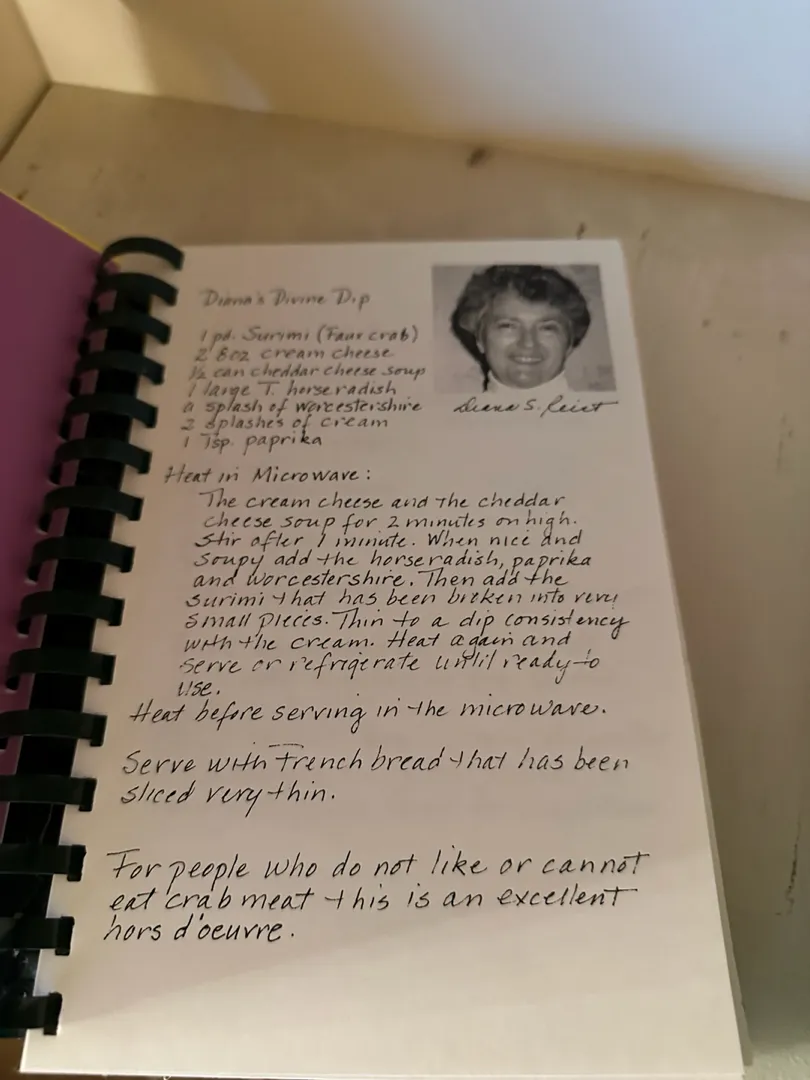 Diana's Divine Dip
1 pd. Surimi (Faux crab)
2 8oz cream cheese
½ can cheddar cheese soup
1 large T. horseradish
a splash of Worcestershire
2 splashes of cream
1 Tsp. paprika
Diana S. Reist
Heat in Microwave:
The cream cheese and the cheddar
cheese soup for 2 minutes on high.
Stir after 1 minute. When nice and
soupy add the horseradish, paprika
and worcestershire. Then add the
surimi that has been broken into very
small pieces. Thin to a dip consistency
with the cream. Heat again and
serve or refrigerate until ready to
use.
Heat before serving in the microwave.
Serve with French bread that has been
sliced very thin.
For people who do not like or cannot
eat crab meat this is an excellent
hors d'oeuvre.